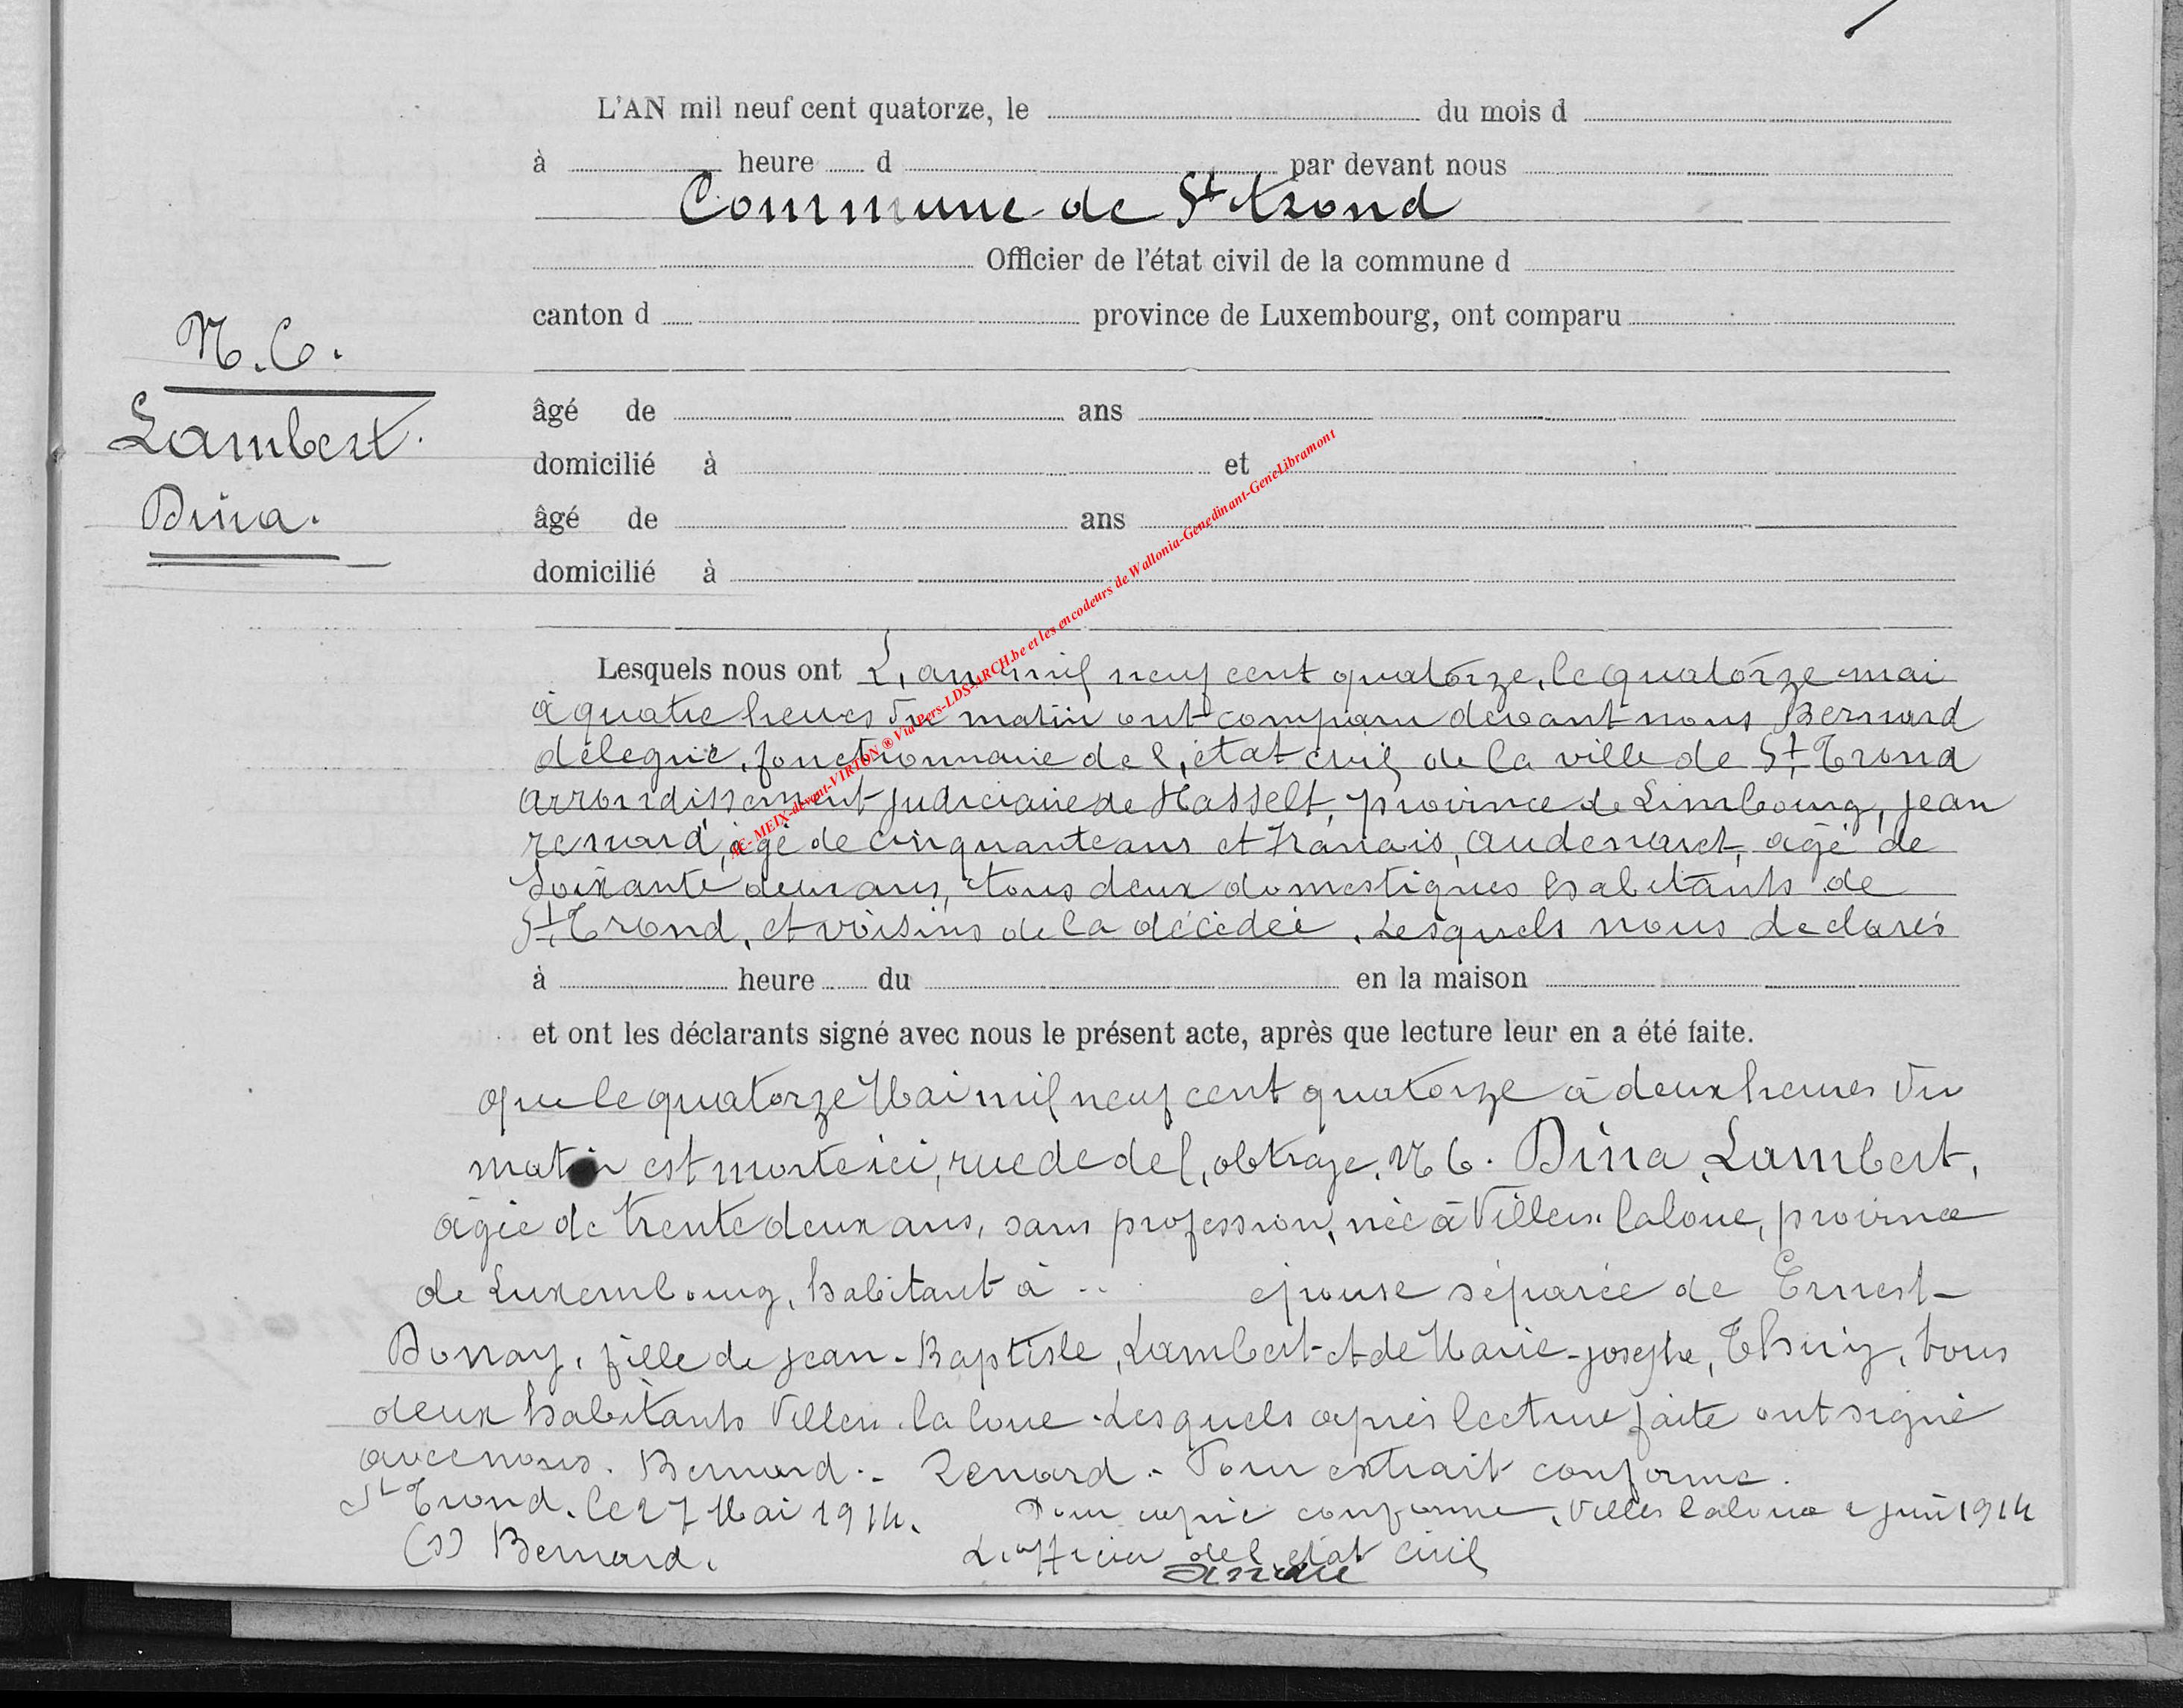 L'AN mil neuf cent quatorze, le du mois d
à heure d par devant nous
Commune de St trond
Officier de l'état civil de la commune d
canton d province de Luxembourg, ont comparu
N. 6.
Lambert.
Dina.
âgé de ans
domicilié à et
âgé de ans
domicilié à
AC- MEIX-devant-VIRTON ® Via Pers-LDS-ARCH.be et les encodeurs de Wallonia-Genedinant-GeneLibramont
Lesquels nous ont L, an mil neuf cent quatorze, le quatorze mai
à quatre heures du matin ont comparu devant nous Bernard
délegué, fonctionnaire de l, état civil de la ville de St Trond
arrondissement judiciaire de Hasselt, province de Limbourg, jean
renard, âgé de cinquante ans et Francais, Audenaert, agé de
soixante deux ans, tous deux domestiques habitants de
St Trond, et voisins de la décédée. Lesquels nous declarés
à heure du en la maison
et ont les déclarants signé avec nous le présent acte, après que lecture leur en a été faite.
que le quatorze Mai mil neuf cent quatorze à deux heures du
matin est morte ici, rue de N 6. Dina, Lambert,
âgée de trente deux ans, sans profession, née à Villers laloue, province
de Luxembourg, habitant à .. epouse séparée de Ernest-
Donay, fille de jean-Baptiste, Lambert et de Marie-josephe, Thiry, tous
deux habitants Villers la loue. Lesquels après lecture faite ont signé
avec nous. Bernard.- Renard.- Pour extrait conforme.
St Trond, le 27 Mai 1914. Pour copie conforme, Villers laloue 2 juin 1914
(s) Bernard. L,officier de l, état civil